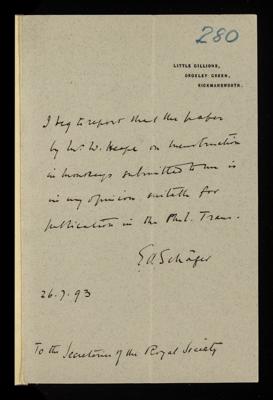 280
LITTLE GILLIONS,
CROXLEY GREEN,
RICKMANSWORTH.
I beg to report that the paper
by Mr. W. Heape on menstruation
in monkeys submitted to me is
in my opinion suitable for
publication in the Phil. Trans.
E A Schäfer
26.7.93
To the Secretaries of the Royal Society